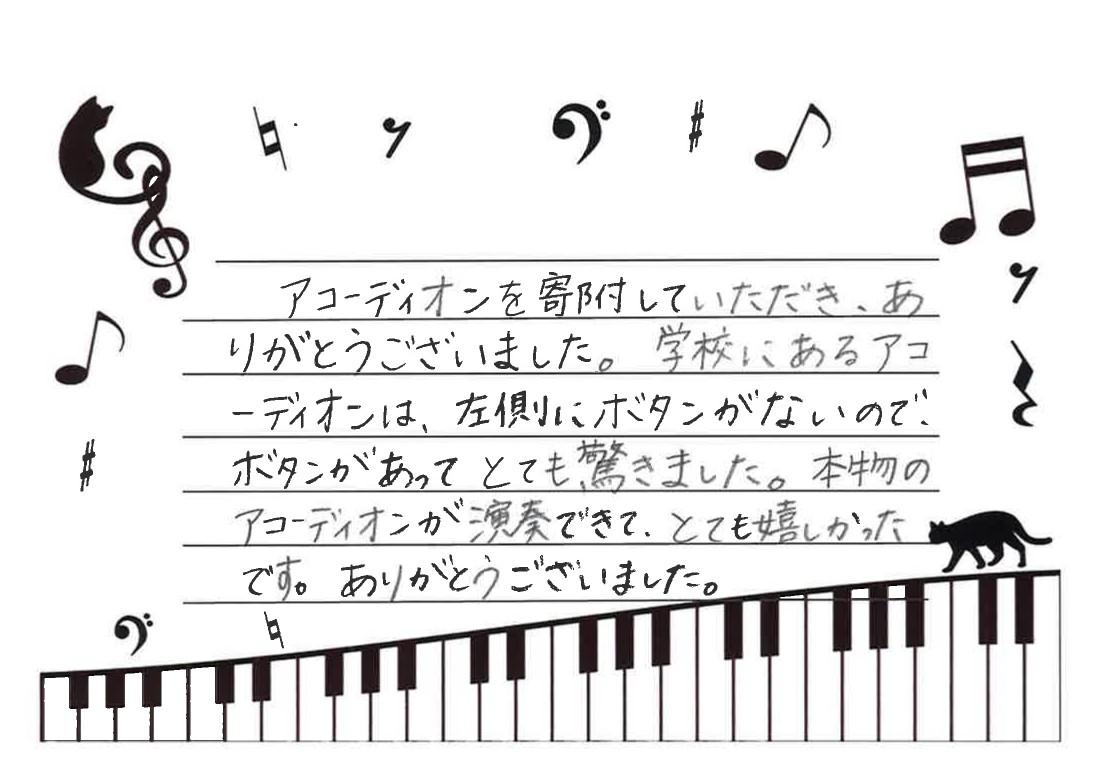 アコーディオンを寄附していただき、あ
りがとうございました。学校にあるアコ
ーディオンは、左側にボタンがないので、
ボタンがあってとても驚きました。本物の
アコーディオンが演奏できて、とても嬉しかった
です。ありがとうございました。